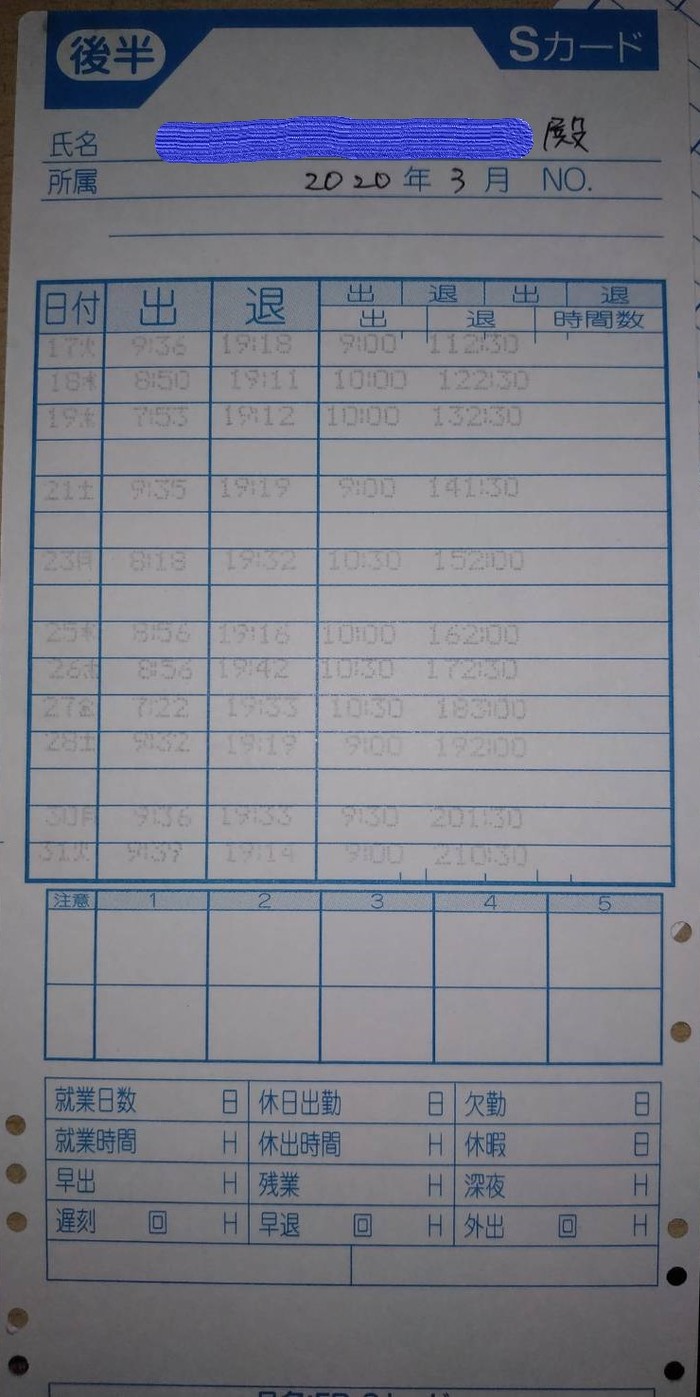 後半 Sカード
氏名 殿
所属 2020年 3月 NO.
日付 出 退 出 退 出 退
出 退 時間数
17火 9:36 19:18 9:00 112:30
18水 8:50 19:11 10:00 122:30
19木 7:53 19:12 10:00 132:30
21土 9:35 19:19 9:00 141:30
23月 8:18 19:32 10:30 152:00
25水 8:56 19:16 10:00 162:00
26木 8:56 19:42 10:30 172:30
27金 7:22 19:33 10:30 183:00
28土 9:32 19:19 9:00 192:00
30月 9:36 19:33 9:30 201:30
31火 9:39 19:14 9:00 210:30
注意 1 2 3 4 5
就業日数 日 休日出勤 日 欠勤 日
就業時間 H 休出時間 H 休暇 日
早出 H 残業 H 深夜 H
遅刻 回 H 早退 回 H 外出 回 H